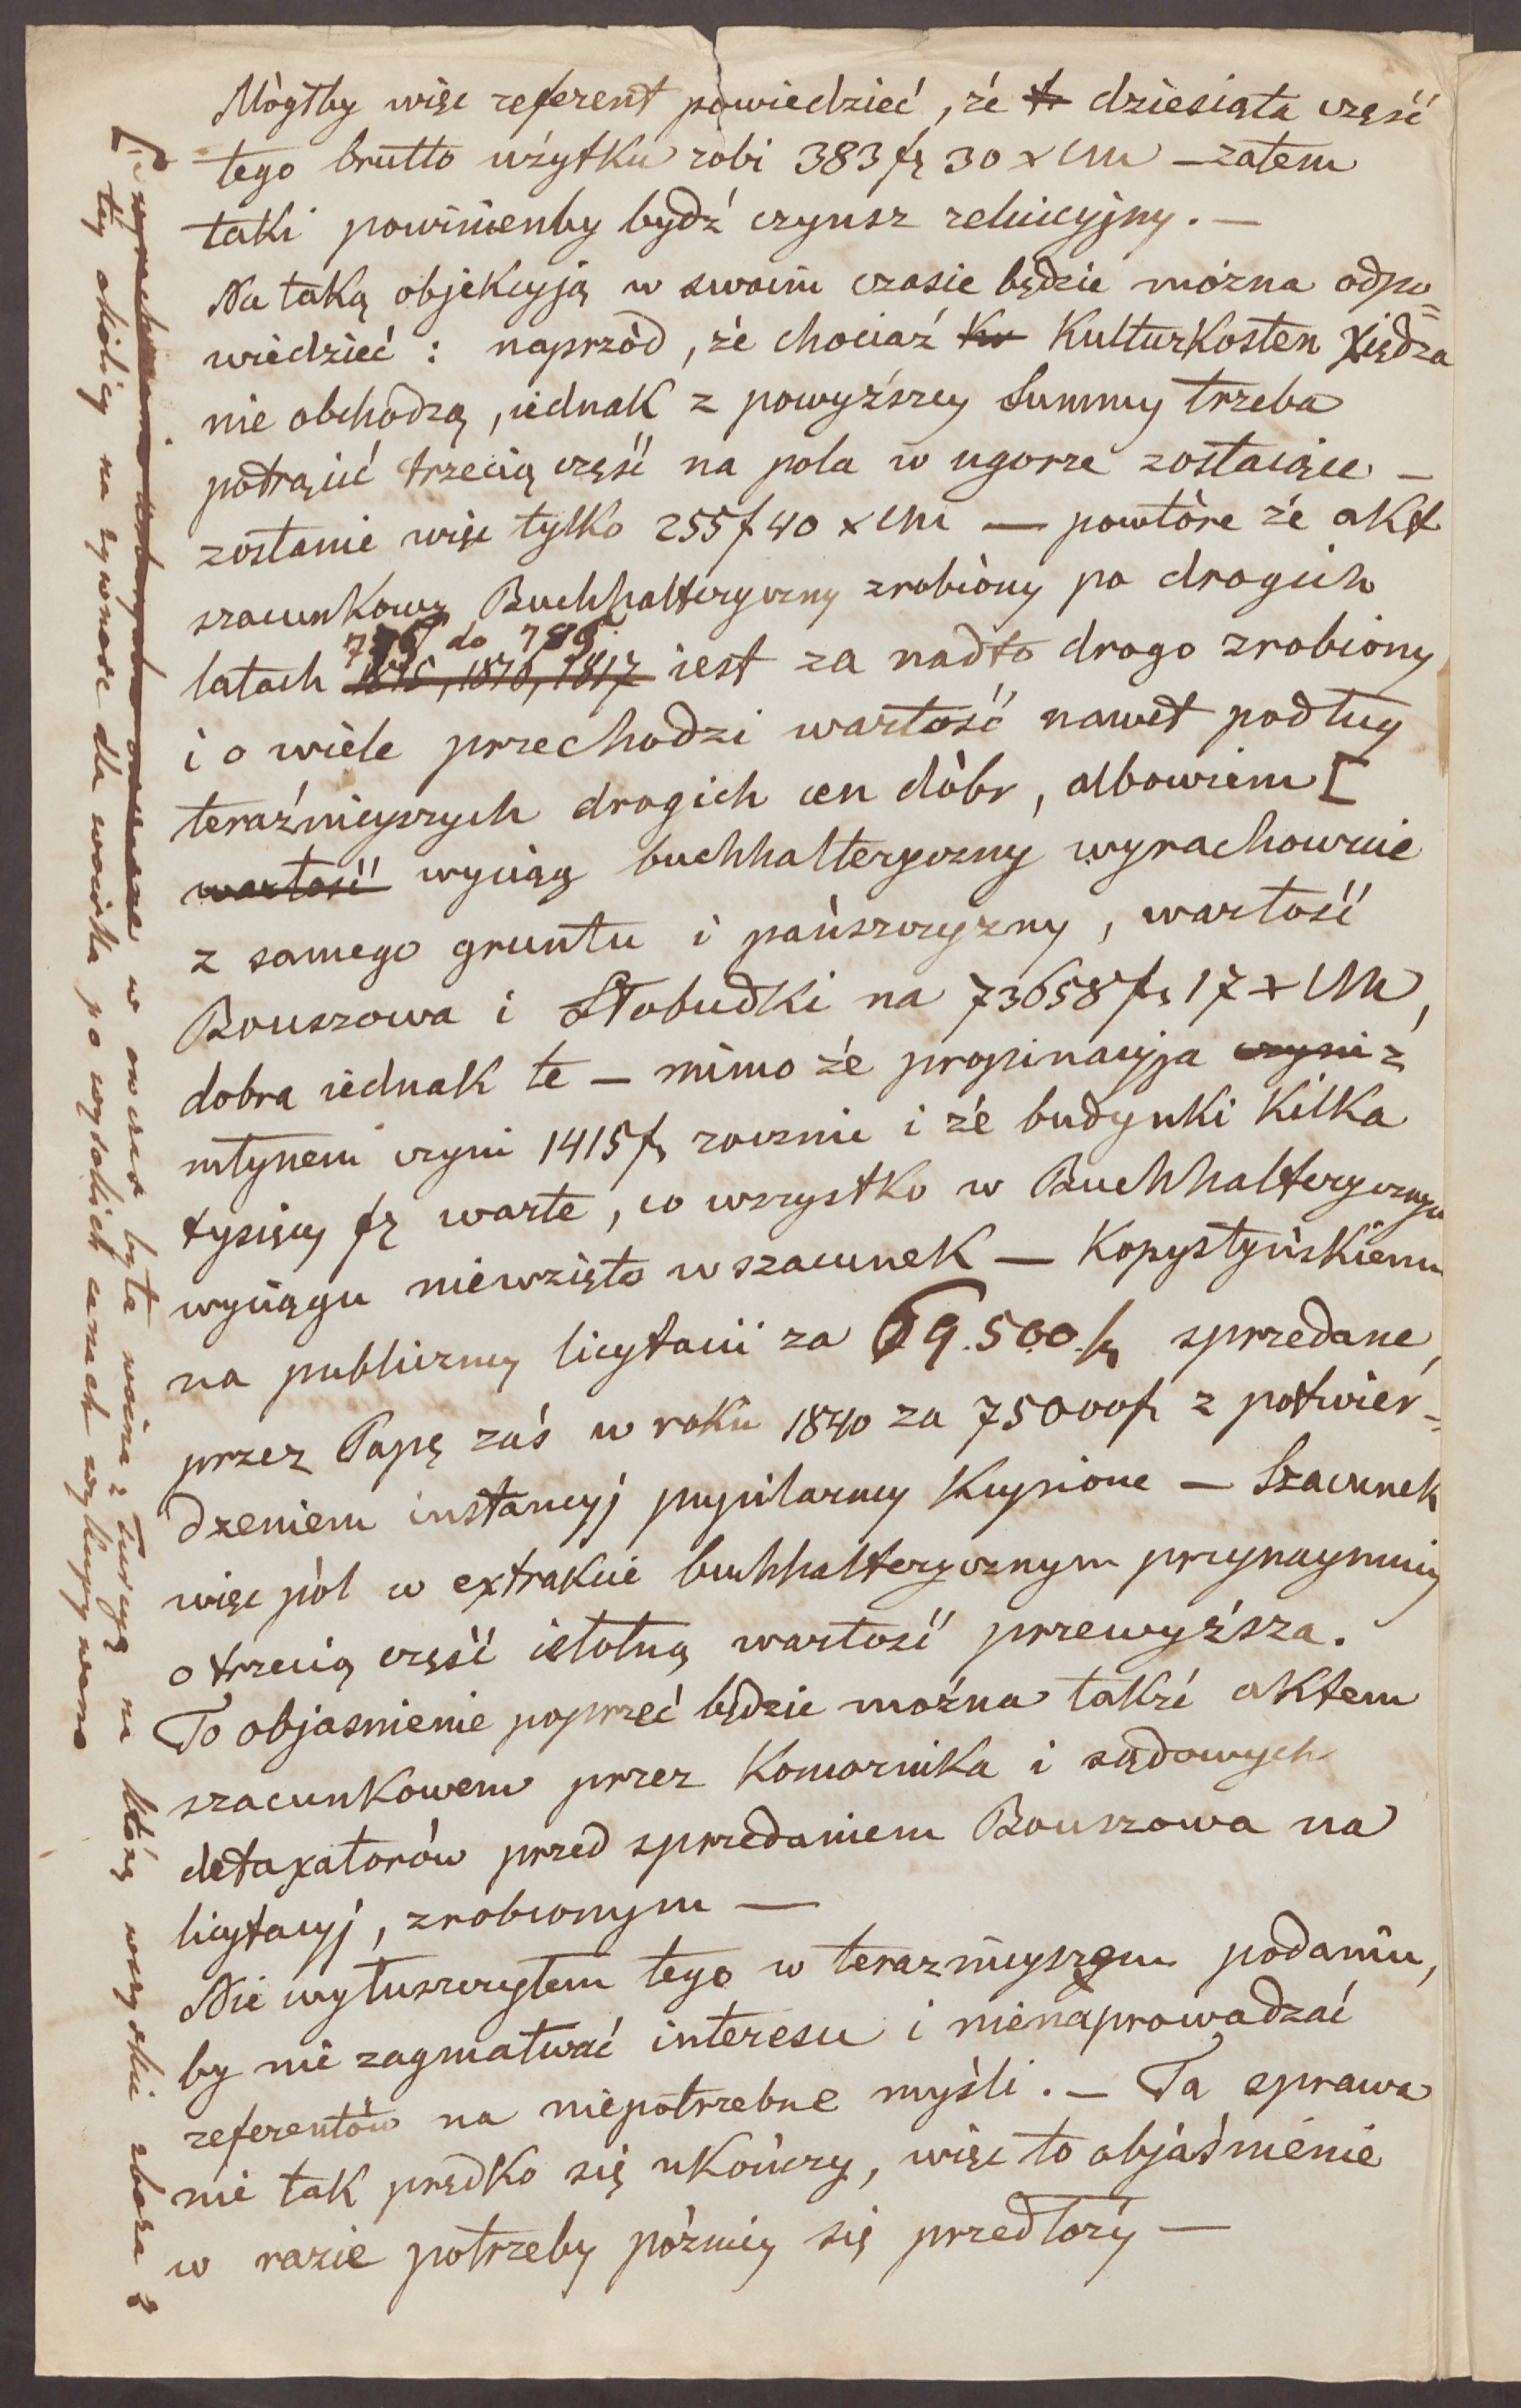 Mògłby więc referent powiedzieć, że dziesiąta część
tego brutto użytku robi 383 fr 30 x CM — zatem
taki powinienby bydź czynsz reluicyjny. —
Na taką objekcyją w swoim czasie będzie można odpo=
wiedzieć : naprzòd, że chociaż Kulturkosten Xiędza
nie obchodzą, iednak z powyższey Summy trzeba
potrącić trzecią część na pola w ugorze zostaiące —
zostanie więc tylko 255 f 40 x CM — powtòre że akt
szacunkowy Buchhalteryczny zrobiòny po drogich
latach 1815, 1816, 1817 iest za nadto drogo zrobiony
do
i o wiele przechodzi wartość nawet podług
teraźnieyszych drogich cen dòbr, albowiem [
wartość wyciąg buchhalteryczny wyrachowuie
z samego gruntu i pańszczyzny, wartość
Bouszowa i Słobudki na 73658 fr 17 x CM,
dobra iednak te — mimo że propinacyja czyni z
młynem czyni 1415 fr rocznie i że budynki kilka
tysięcy fr warte, co wszystko w Buchhalterycznym
wyciągu niewzięto w szacunek — Kopystyńskiemu
na publiczney licytacii za 59.500 fr sprzedane,
przez Papę zaś w roku 1840 za 75000 fr z potwier=
dzeniem instancyj pupilarney kupione — Szacunek
więc pòl w extrakcie buchhalterycznym przynaymniey
o trzecią część istotną wartość przewyższa.
To objasnienie poprzeć będzie można także aktem
szacunkowem przez Komornika i sądowych
detaxatoròw przed sprzedaniem Bouszowa na
licytacyj, zrobionym —
Nie wytuszczyłem tego w terazńieyszem podaniu,
by nie zagmatwać interesu i nienaprowadzać
referentòw na niepotrzebne myśli. — Ta sprawa
nie tak prędko się ukończy, więc to objaśnienie
w razie potrzeby pòzniey się przedłoży —
[ w owczas była woina z Turcyą na ktòrą wszystkie zboża z
tey okolicy na żywnosc dla woiska po wysokich cenach wykupywano